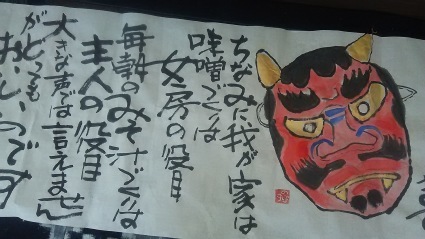 ちなみに我が家は
味噌づくりは
女房の役目
毎朝のみそ汁づくりは
主人の役目
大きな声では言えません
がとっても
おいしいのです